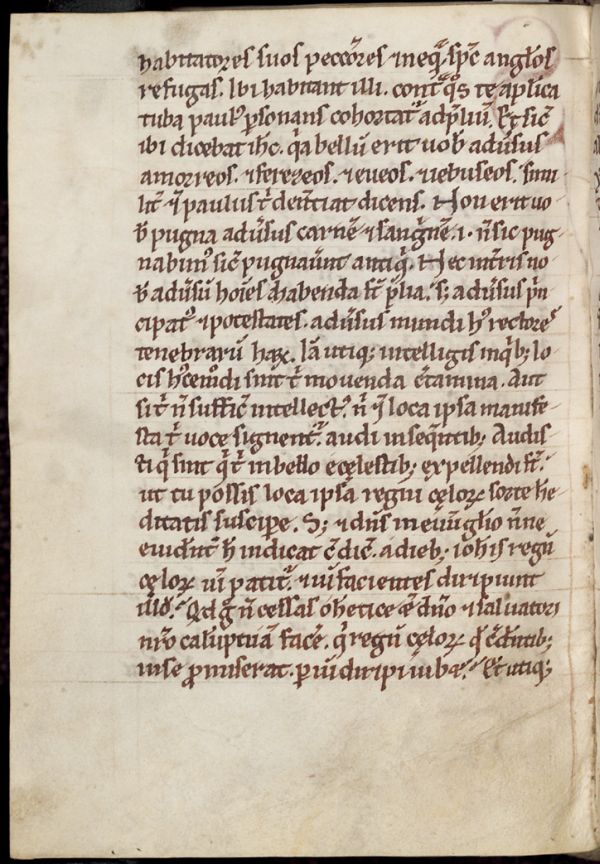 habitatores suos peccōres ⁊ neq̄. sp̄c anglos
refugas. Ibi habitant illi. cont̄ q̄s te aplica
tuba paulꝰ ꝑsonans cohortat̄ adp̄liū. Et sic̄
ibi dicebat ihc̄. q̄a bellū erit uob̄ adūsus
amorreos. ⁊ ferezeos. ⁊ eueos. ⁊ iebuseos. Simi
lit̄ ⁊ paulus t̄ dēntiat dicens. Non erit uo
b̄ pugna adūsus carnē ⁊ sanḡnē .i. n̄ sic pug
nabimꝰ sic̄ pugnaūnt antiq̄. Nec int̄ris no
b̄ adūsū hoīes habenda st̄ p̄lia. s; adūsus p̄n
cipatꝰ ⁊ potestates. adūsus mundi hꝰ rectores
tenebrarū haꝝ. Iā utiq; intelligis in qb; lo
cis hꝰcemōdi sint t̄ mouenda c̄tamina. Aut
si t̄ n̄ suffic̄ intellectꝰ. n̄ loca ipsa manife
sta t̄ uoce signent̄. audi in seq̄ntib; Audis
ti q̄ sint q̄ t̄ in bello ę celestib; expellendi st̄.
ut tu possis loca ipsa regni cęloꝝ sorte he
ditatis suscipe. S; ⁊ dn̄s in euūglio n̄ne
euidn̄t̄ h̄ indicat c̄ dic̄. a dieb; iohis regnū
cęloꝝ uim patit̄. ⁊ uī facientes diripiunt
illđ. Qđ ḡ n̄ cessas o heretice ⁊ dn̄o ⁊ saluatori
nr̄o calūptuā facē. q̄ regnū cęloꝝ c̄dntib;
in se ꝓmiserat. p̄ uī diripi iubæ. Et utiq;